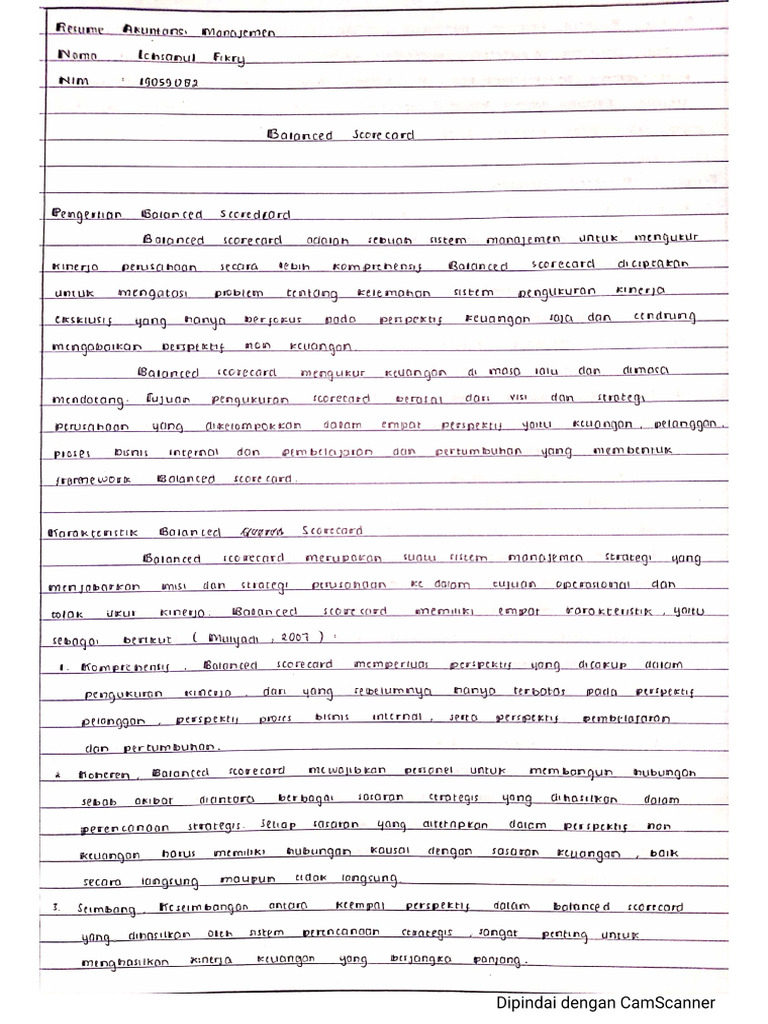 Resume Akuntansi Manajemen
Nama : Ichsanul Fikry
NIM : 19059082
Balanced Scorecard
Pengertian Balanced Scorecard
Balanced scorecard adalah sebuah sistem manajemen untuk mengukur
kinerja perusahaan secara lebih komprehensif Balanced scorecard diciptakan
untuk mengatasi problem tentang kelemahan sistem pengukuran kinerja
eksklusif yang hanya berfokus pada perspektif keuangan saja dan cendrung
mengabaikan perspektif non keuangan.
Balanced scorecard mengukur keuangan di masa lalu dan dimasa
mendatang. Tujuan pengukuran scorecard berasal dari visi dan strategi
perusahaan yang dikelompokkan dalam empat perspektif yaitu keuangan, pelanggan,
proses bisnis internal dan pembelajaran dan pertumbuhan yang membentuk
framework Balanced scorecard.
Karakteristik Balanced Scorecard
Balanced scorecard merupakan suatu sistem manajemen strategi yang
menjabarkan misi dan strategi perusahaan ke dalam tujuan operasional dan
tolak ukur kinerja. Balanced scorecard memiliki empat karakteristik, yaitu
sebagai berikut (Mulyadi, 2007) :
1. Komprehensif, Balanced scorecard memperluas perspektif yang dicakup dalam
pengukuran kinerja, dari yang sebelumnya hanya terbatas pada perspektif
pelanggan, perspektif proses bisnis internal, serta perspektif pembelajaran
dan pertumbuhan.
2. Koheren, Balanced scorecard mewajibkan personel untuk membangun hubungan
sebab akibat diantara berbagai sasaran strategis yang dihasilkan dalam
perencanaan strategis. Setiap sasaran yang diterapkan dalam perspektif non
keuangan harus memiliki hubungan kausal dengan sasaran keuangan, baik
secara langsung maupun tidak langsung.
3. Seimbang, Keseimbangan antara keempat perspektif dalam balanced scorecard
yang dihasilkan oleh sistem perencanaan strategis, sangat penting untuk
menghasilkan kinerja keuangan yang berjangka panjang.
Dipindai dengan CamScanner